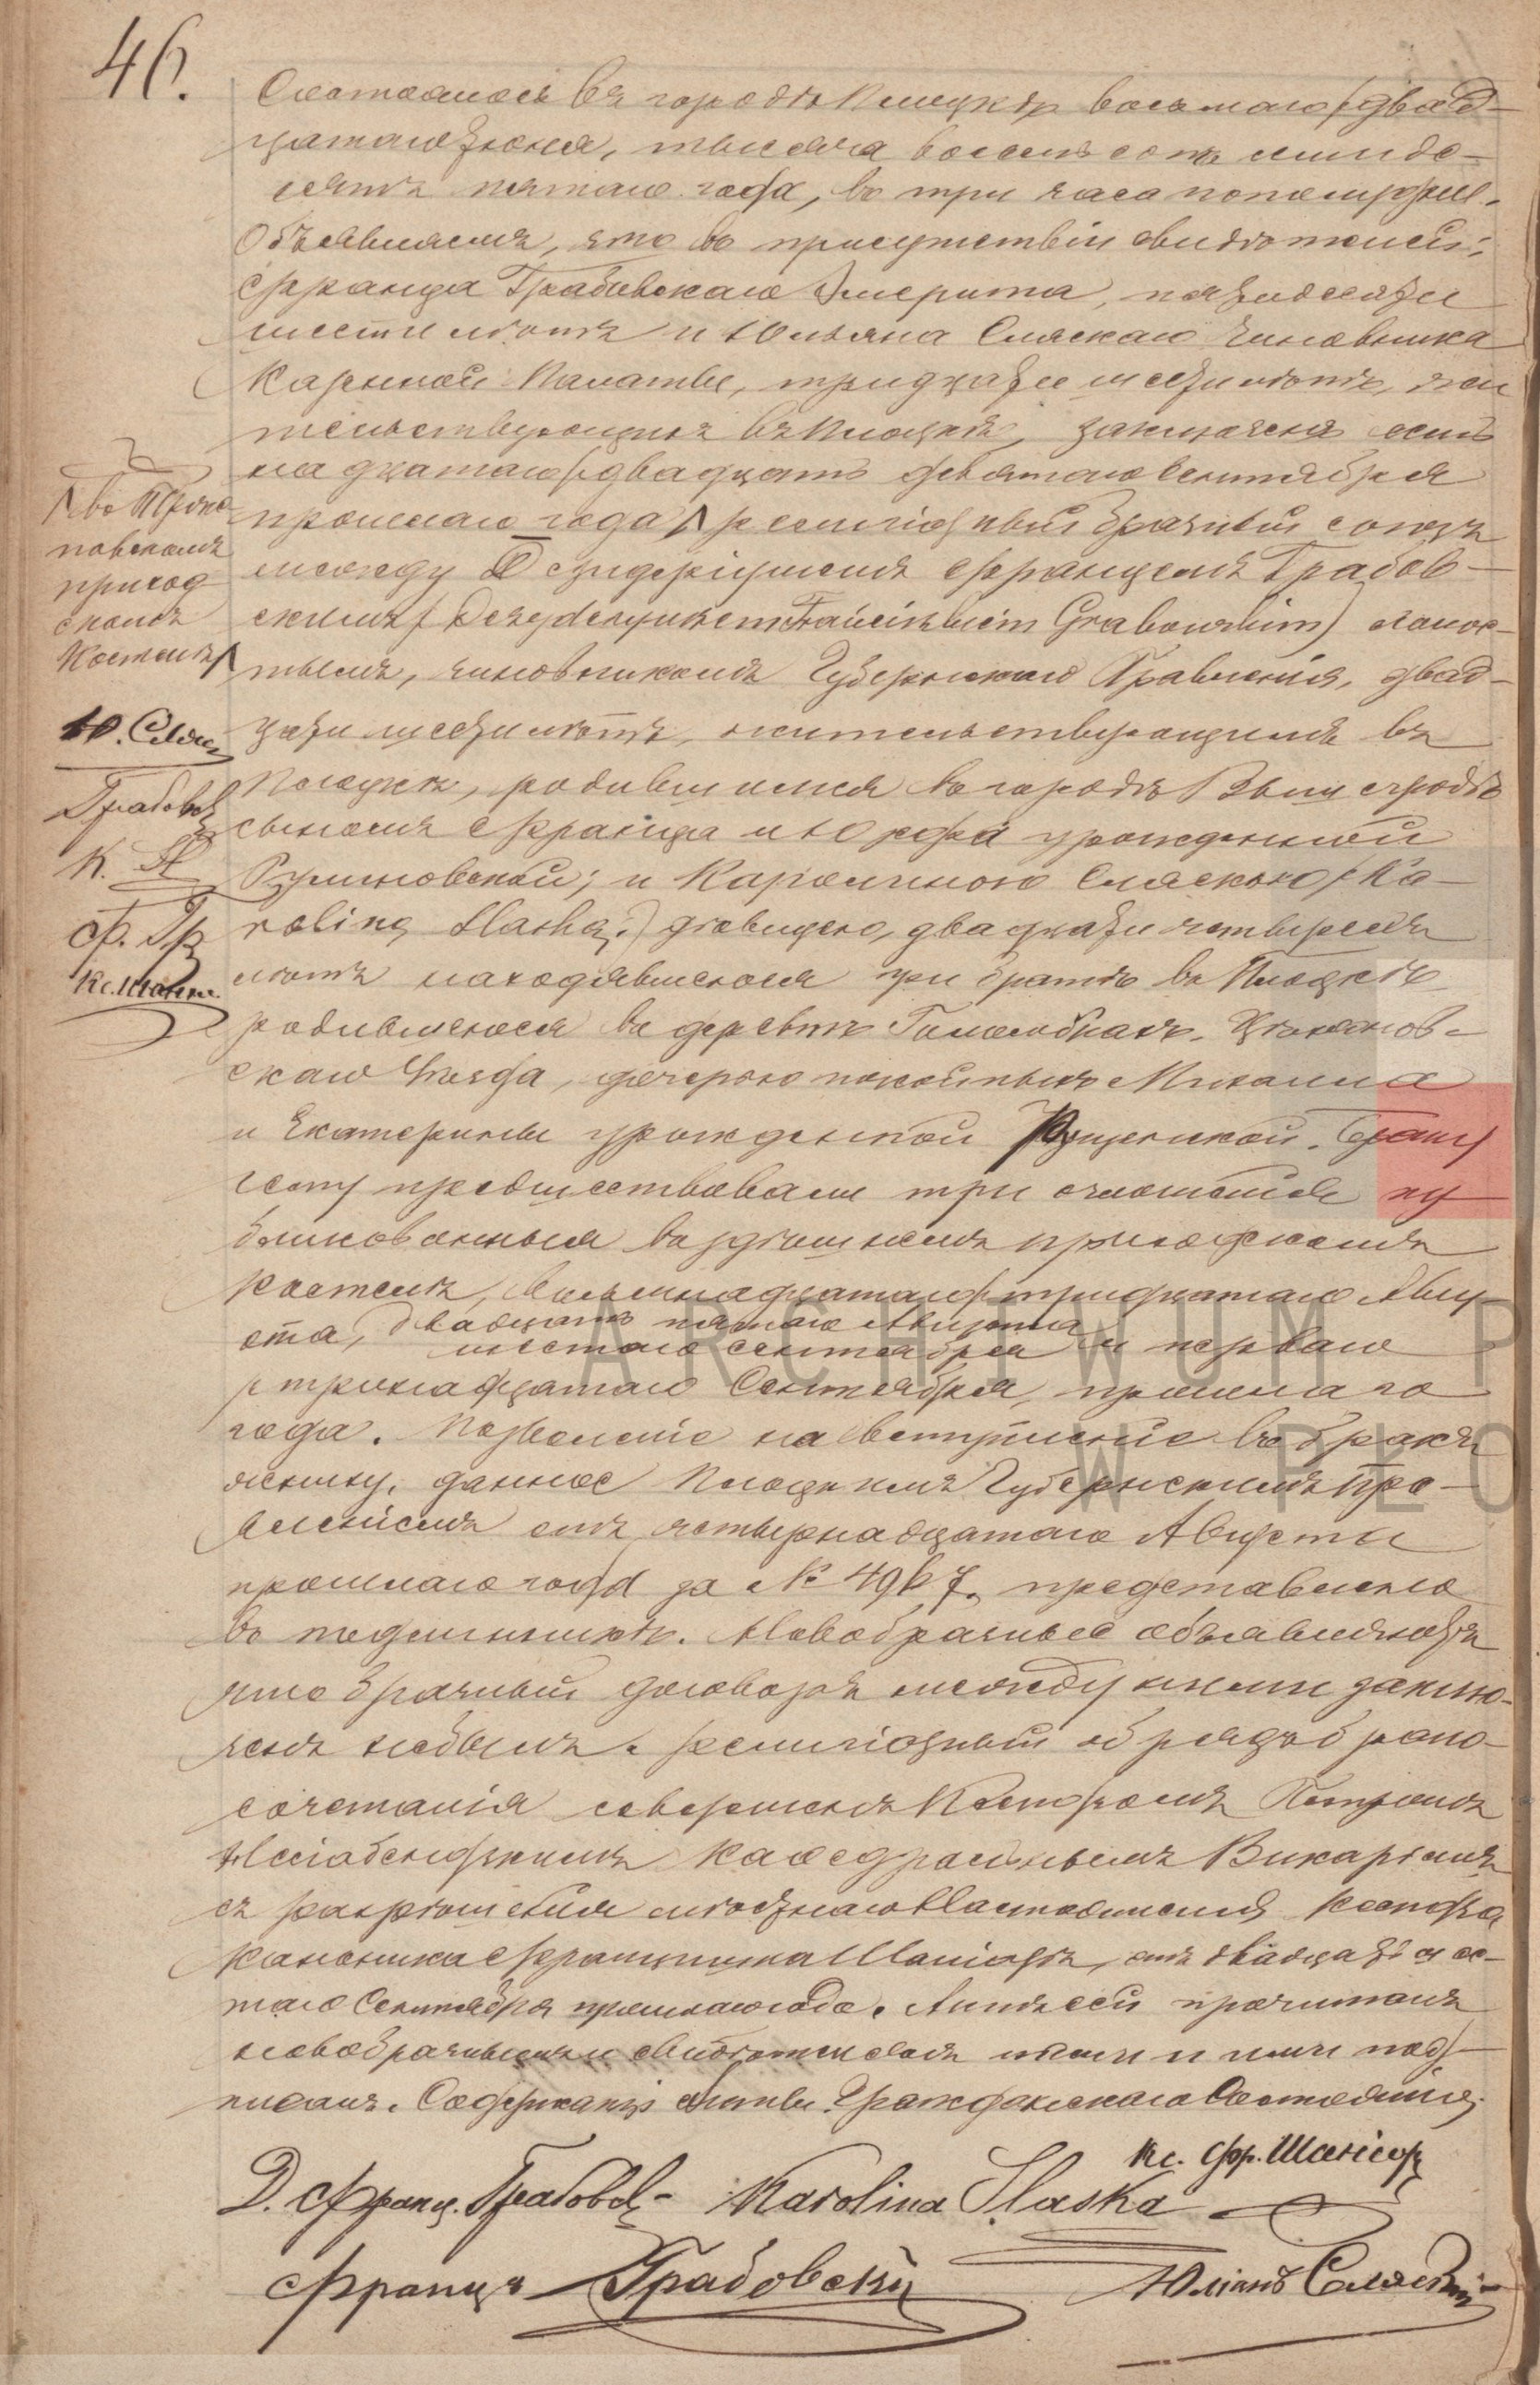 46.
Состоялось въ городѣ Плоцкѣ восьмаго /двад-
цатаго/ Іюня, тысяча восемьсотъ семьде-
сятъ пятаго года, въ три часа пополудни.
Объявляемъ, что въ присутствіи свидѣтелей:
Франца Грабовскаго Эмерита, пятидесяти
шести лѣтъ и Юльяна Сляскаго Чиновника
Казенной Палаты, тридцати шести лѣтъ, жи
тельствующихъ въ Плоцкѣ, заключенъ осьм
надцатаго /двадцать девятаго Сентября
прошлаго года религіозный брачный союзъ
между Дезидеріушемъ Францемъ Грабов-
скимъ / Dezyderyuszem Franciszkiem Grabowskim) холос-
тымъ, чиновникомъ Губернскаго Правленія, двад-
цати шести лѣтъ, жительствующимъ въ
Плоцкѣ, родившимся въ городѣ Вышегродѣ
сыномъ Франца и урожденной
и Каролиною Сляскою /Ka-
roliną Slaską.) дѣвицею, двадцати четырехъ
лѣтъ находившеюся при братѣ въ Плоцкѣ
родившеюся въ деревнѣ Цѣханов-
скаго уѣзда, дочерью покойныхъ Михаила
и Екатерины урожденной Браку
сему предшествовали три оглашенія пу
бликованныя въ здѣшнемъ приходскомъ
костелѣ, Восемнадцатаго /тридцатаго Авгу-
ста, двадцать пятаго Августа
шестаго Сентября и перваго
/ тринадцатаго Сентября, прошлаго
года. Позволеніе на вступленіе въ бракъ
жениху, данное Плоцкимъ Губернскимъ Пра-
вленіемъ отъ четырнадцатаго Августа
прошлаго года за № 4967, представлено
въ подлинникѣ. Новобрачные объявляютъ
что брачный договоръ между ними заклю-
ченъ небылъ. религіозный обрядъ брако-
сочетанія совершенъ Ксендзомъ Петромъ
Каѳедральнымъ Викаріемъ
съ разрѣшенія мѣстнаго Настоятеля Ксендза
Каноника Францишка Шаніора, отъ двадцать шес-
таго Сентября прошлаго года. Актъ сей прочитанъ
новобрачнымъ и свидѣтелямъ нами и ими под-
писанъ. Содержащій Акты Гражданскаго Состоянія.
Кс. Фр. Шаніоръ
Д. Франц. Грабовс- Karolina Slaska
Францъ Грабовскій Юліанъ Сляскій
въ
приход
скомъ
Костелѣ
Ю. Сляс
Грабовс
К. S
Ф. Гр
Кс. Шаніо.